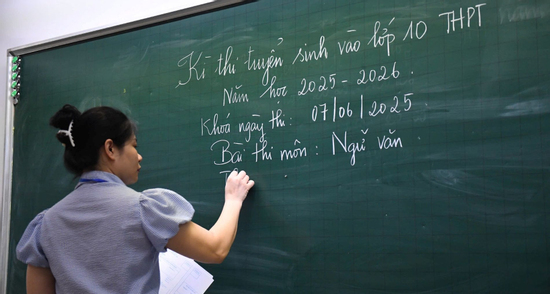 Kì thi tuyển sinh vào lớp 10 THPT
Năm học 2025-2026.
Khoá ngày thi: 07/06/2025
Bài thi môn: Ngữ văn
T